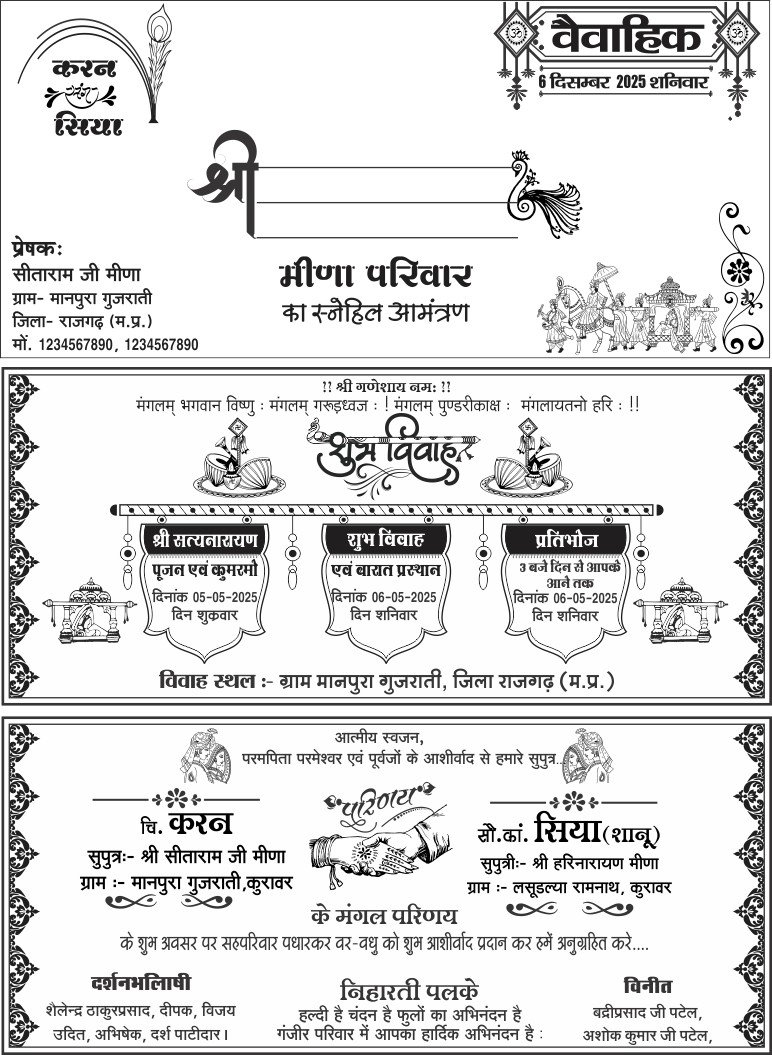 करन
संग
सिया
वैवाहिक
6 दिसम्बर 2025 शनिवार
श्री
प्रेषकः
सीताराम जी मीणा
ग्राम- मानपुरा गुजराती
जिला- राजगढ़ (म.प्र.)
मों. 1234567890, 1234567890
मीणा परिवार
का स्नेहिल आमंत्रण
!! श्री गणेशाय नमः !!
मंगलम् भगवान विष्णु : मंगलम् गरूड़ध्वज : ! मंगलम् पुण्डरीकाक्ष : मंगलायतनो हरि : !!
शुभ विवाह
श्री सत्यनारायण
पूजन एवं कुमरमौ
दिनांक 05-05-2025
दिन शुक्रवार
शुभ विवाह
एवं बारात प्रस्थान
दिनांक 06-05-2025
दिन शनिवार
प्रतिभोज
3 बजे दिन सै आपके
आनै तक
दिनांक 06-05-2025
दिन शनिवार
विवाह स्थल :- ग्राम मानपुरा गुजराती, जिला राजगढ़ (म.प्र.)
आत्मीय स्वजन,
परमपिता परमेश्वर एवं पूर्वजों के आशीर्वाद से हमारे सुपुत्र...
चि. करन
सुपुत्रः- श्री सीताराम जी मीणा
ग्राम :- मानपुरा गुजराती,कुरावर
परिणय
सौ.कां. सिया(शानू)
सुपुत्रीः- श्री हरिनारायण मीणा
ग्राम :- लसूडल्या रामनाथ, कुरावर
के मंगल परिणय
के शुभ अवसर पर सहपरिवार पधारकर वर-वधु को शुभ आशीर्वाद प्रदान कर हमें अनुग्रहित करे....
दर्शनभलिाषी
शैलेन्द्र ठाकुरप्रसाद, दीपक, विजय
उदित, अभिषेक, दर्श पाटीदार।
निहारती पलके
हल्दी है चंदन है फुलों का अभिनंदन है
गंजीर परिवार में आपका हार्दिक अभिनंदन है :
विनीत
बद्रीप्रसाद जी पटेल,
अशोक कुमार जी पटेल,